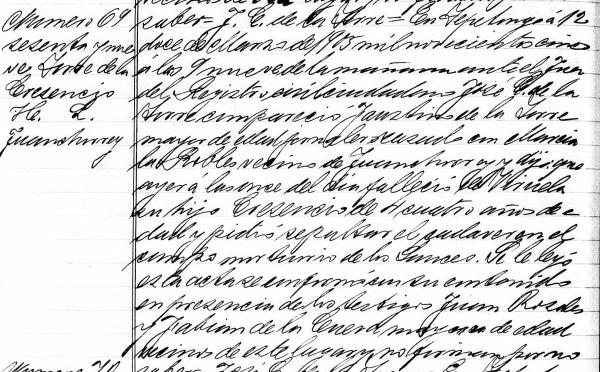 Numero 69
sesenta y nue
ve, Torre de la
Cresencio
H. L.
Juanchorrey
saber J. E. de la Torre = En Tepetongo á 12
doce de Marzo de 1905 mil novecientos cinco
á las 9 nueve de la mañana ante el Juez
del Registro civil ciudadano José E. de la
Torre compareció Faustino de la Torre
mayor de edad jornalero casado con Marcia
la Robles vecino de Juanchorrey y dijo que
ayer á las once del dia falleció de Viruela
su hijo Cresencio de 4 cuatro años de e
dad y pidió sepultar el cadaver en el
campo mortuorio de los Sauces. Se le leyó
esta acta se conformó con su contenido
en presencia de los testigos Juan Rosales
y Fabian de la Cueva, mayores de edad
vecinos de este lugar y no firman por no
Numero 70
saber José E. de la